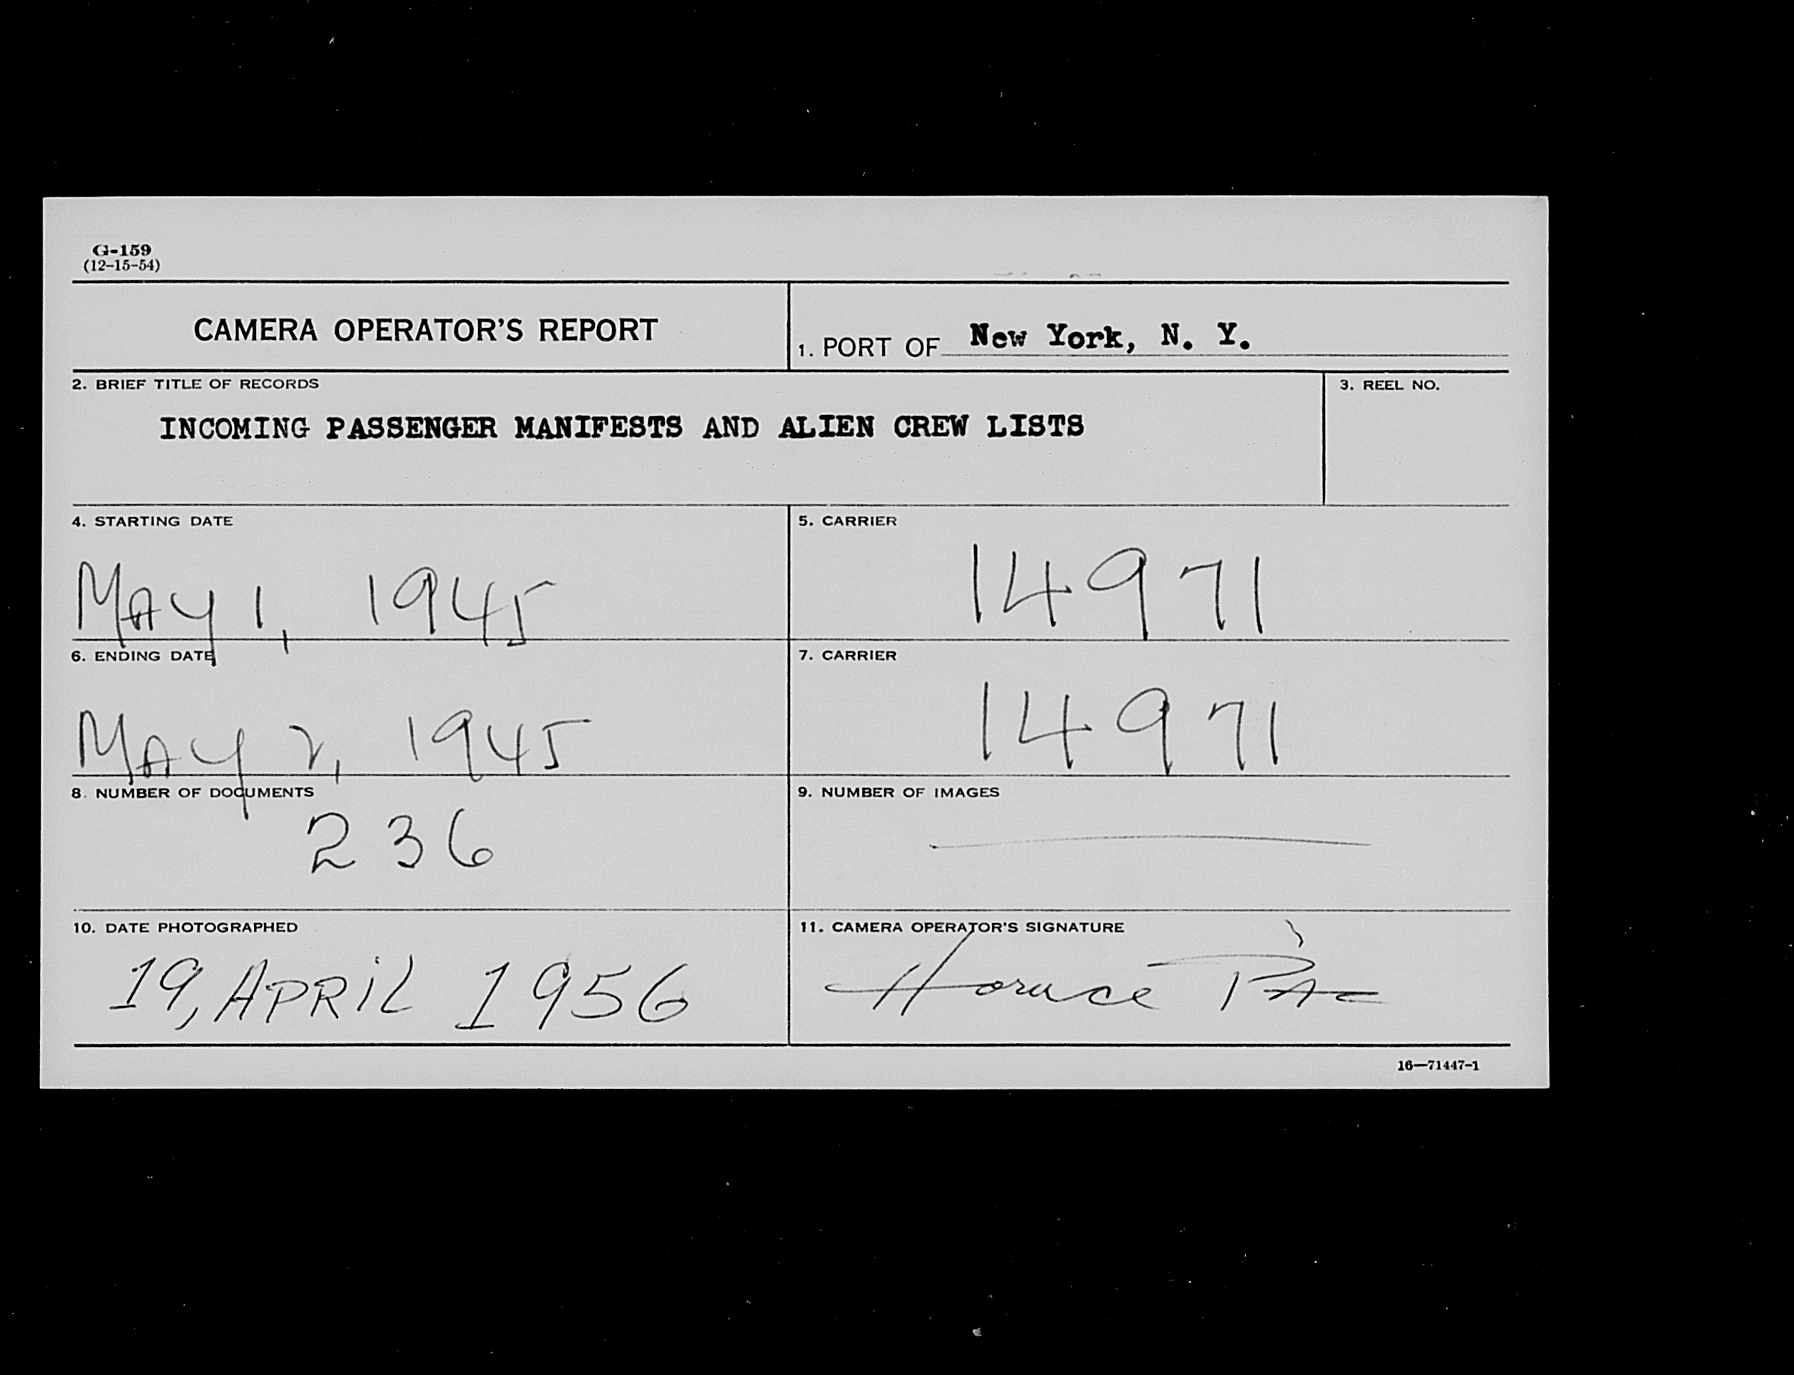 G-159
(12-15-54)
CAMERA OPERATOR'S REPORT
1. PORT OF New York, N. Y.
2. BRIEF TITLE OF RECORDS
3. REEL NO.
INCOMING PASSENGER MANIFESTS AND ALIEN CREW LISTS
4. STARTING DATE
5. CARRIER
MAY 1, 1945
14971
6. ENDING DATE
7. CARRIER
MAY 2, 1945
14971
8. NUMBER OF DOCUMENTS
9. NUMBER OF IMAGES
236
10. DATE PHOTOGRAPHED
11. CAMERA OPERATOR'S SIGNATURE
19, APRIL 1956
Horace
16—71447-1